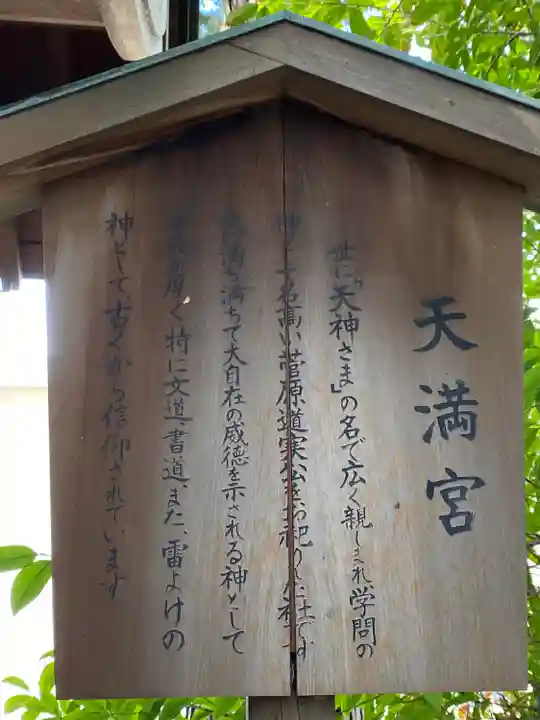 天満宮
世に「天神さま」の名で広く親しまれ、学問の
神として名高い菅原道実公をお祀りした社です
満ち満ちて大自在の威徳を示される神として
厚く特に文道、書道、また、雷よけの
神として、古くから信仰されています